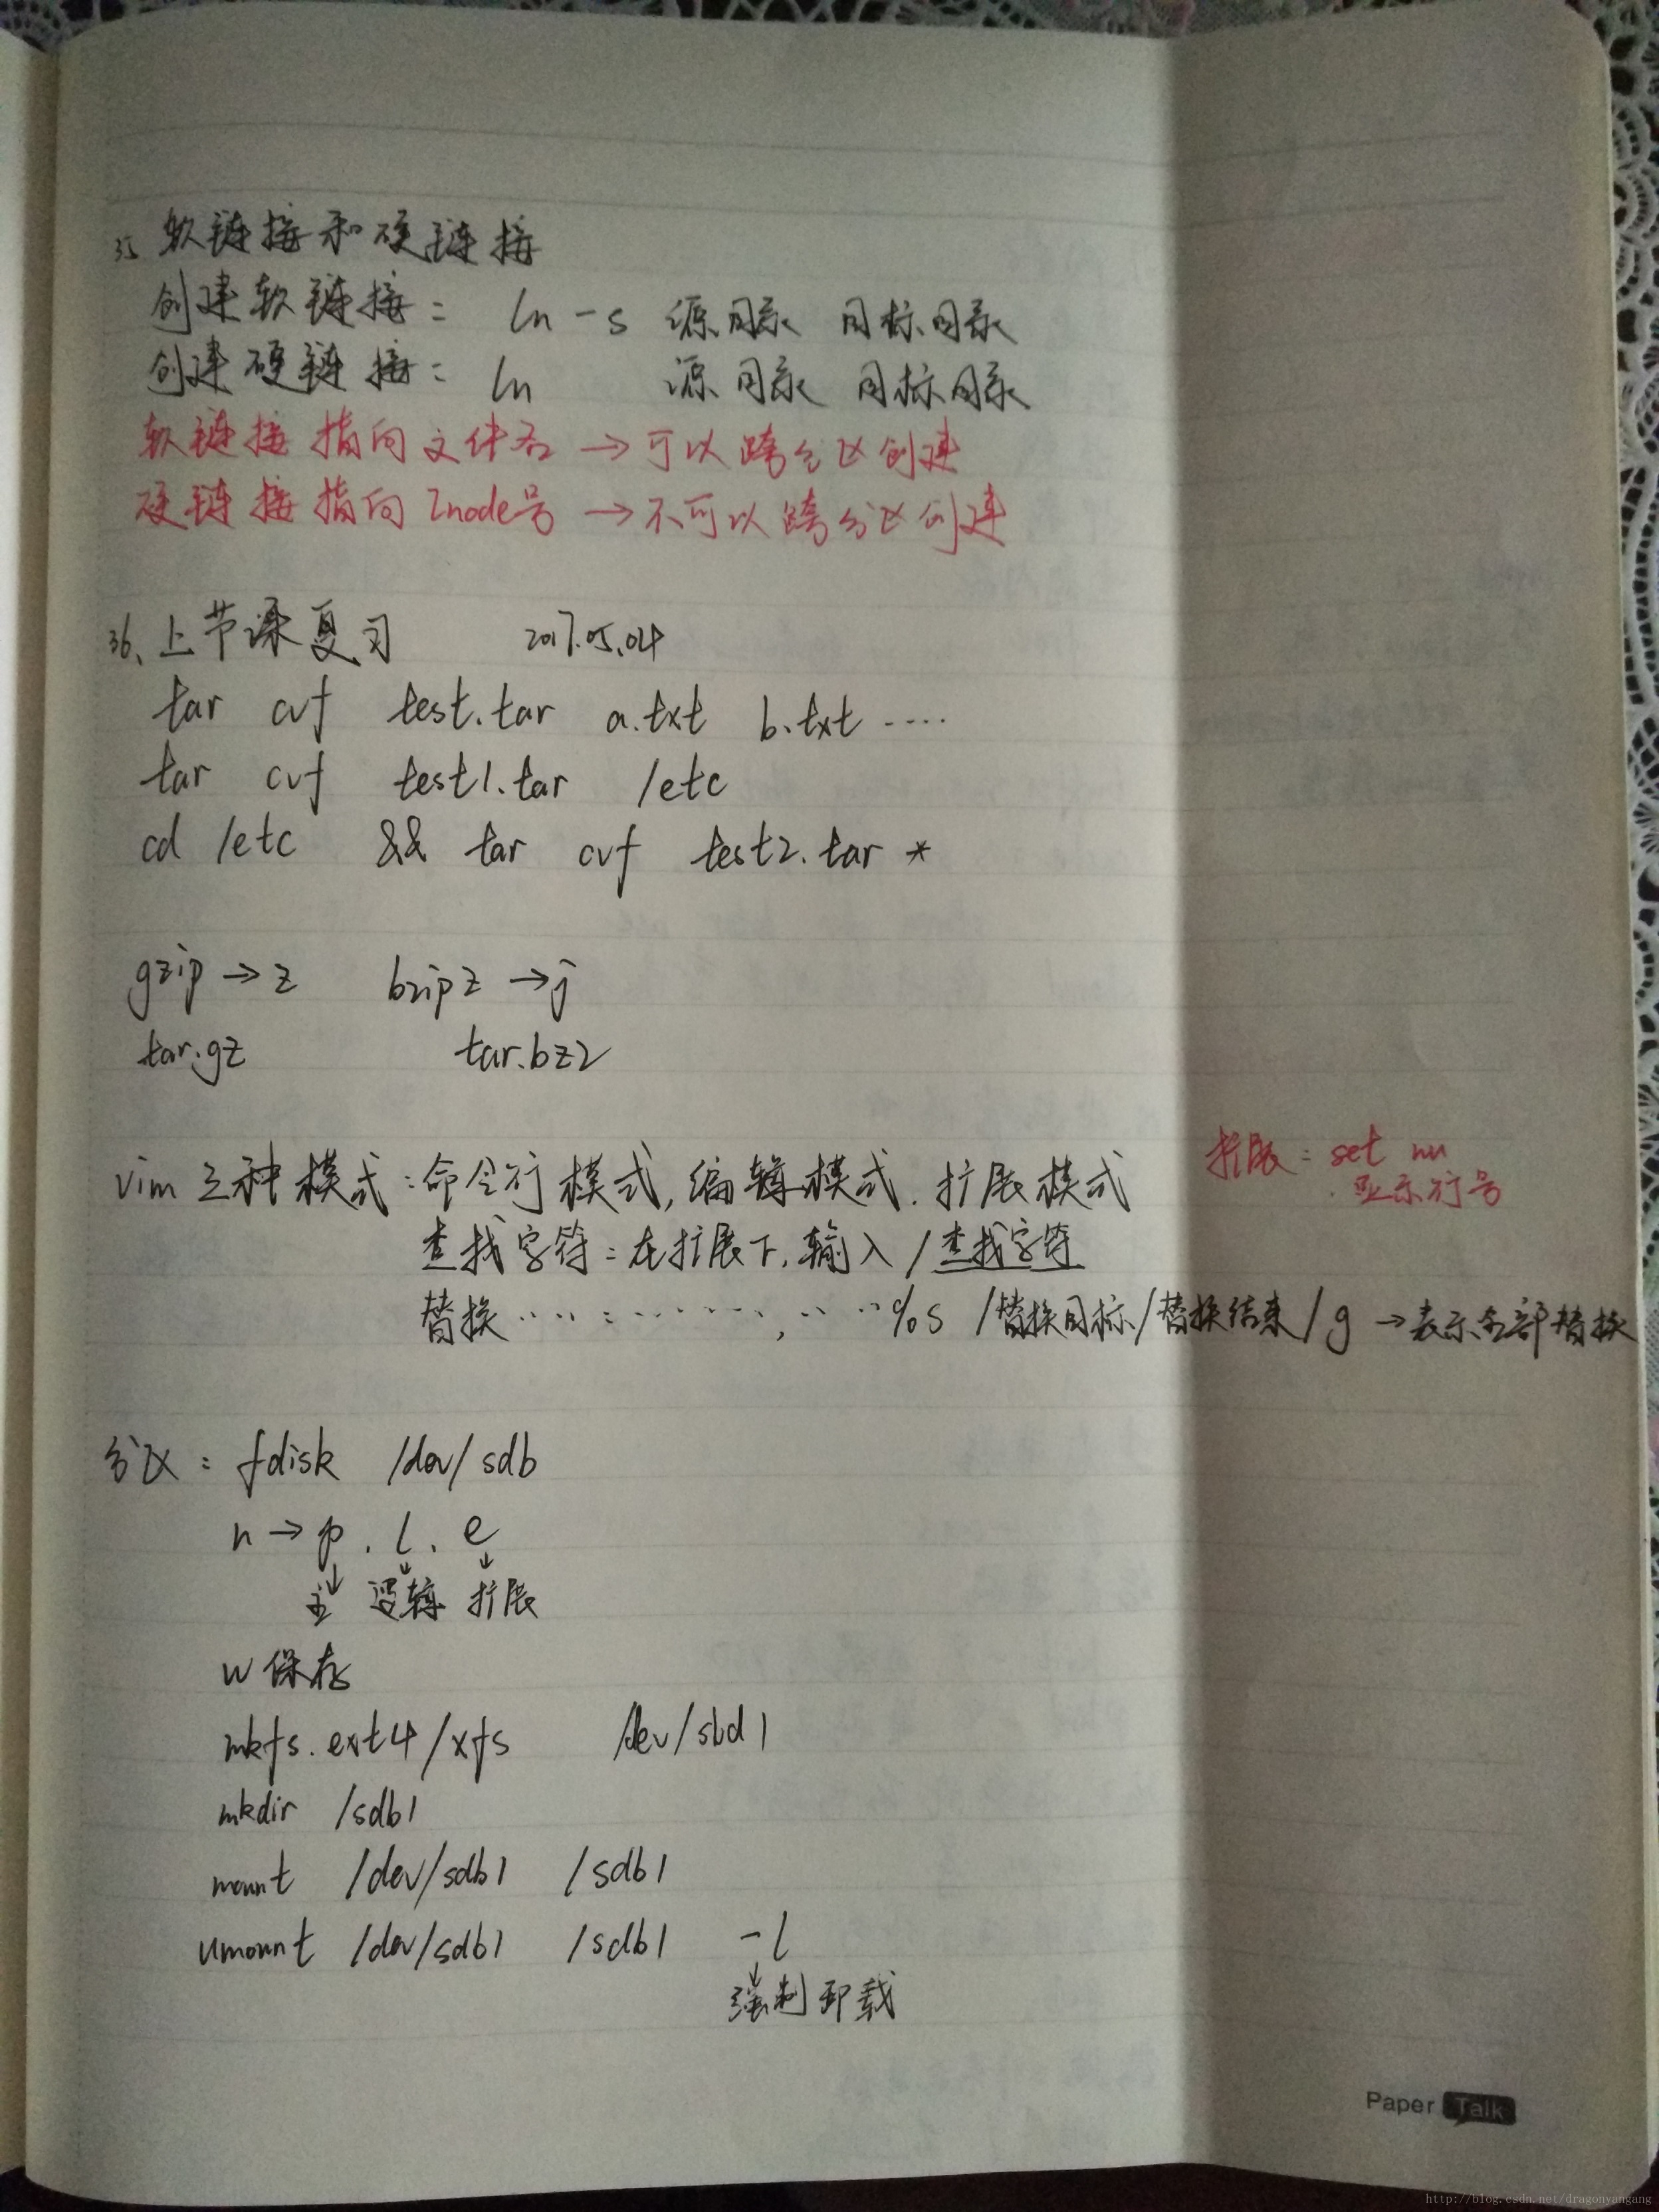 35、软链接和硬链接
创建软链接: ln -s 源目录 目标目录
创建硬链接: ln 源目录 目标目录
软链接指向文件名 → 可以跨分区创建
硬链接指向Inode号 → 不可以跨分区创建
36、上节课复习 2017.05.04
tar cvf test.tar a.txt b.txt ····
tar cvf test1.tar /etc
cd /etc && tar cvf test2.tar *
gzip → z bzip2 → j
tar.gz tar.bz2
vim 三种模式:命令行模式,编辑模式.扩展模式
扩展: set nu
显示行号
查找字符:在扩展下,输入 /查找字符
替换 ····:······, ····%s /替换目标/替换结果/g → 表示全部替换
分区: fdisk /dev/sdb
n → p. l. e
↓ ↓ ↓
主 逻辑 扩展
w保存
mkfs.ext4/xfs /dev/sbd1
mkdir /sdb1
mount /dev/sdb1 /sdb1
umount /dev/sdb1 /sdb1 -l
↓
强制卸载
Paper Talk
http://blog.csdn.net/dragonyangang